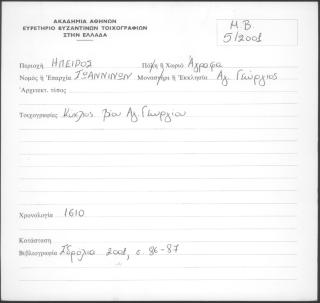 ΑΚΑΔΗΜΙΑ ΑΘΗΝΩΝ
ΕΥΡΕΤΗΡΙΟ ΒΥΖΑΝΤΙΝΩΝ ΤΟΙΧΟΓΡΑΦΙΩΝ
ΣΤΗΝ ΕΛΛΑΔΑ
Μ.Β.
5/2001
Περιοχή ΗΠΕΙΡΟΣ Πόλη ή Χωριό Άγραφα
Νομός ή Ἐπαρχία ΙΩΑΝΝΙΝΩΝ Μοναστήρι ή Ἐκκλησία Αγ. Γεώργιος
Ἀρχιτεκτ. τύπος
Τοιχογραφίες Κύκλος βίου Αγ. Γεωργίου
Χρονολογία 1610
Κατάσταση
Βιβλιογραφία 2001, σ. 86-87